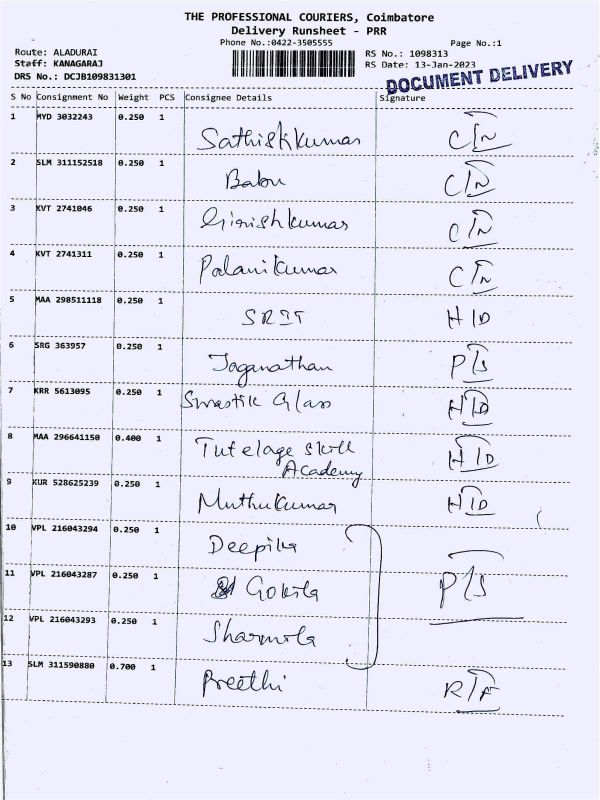 THE PROFESSIONAL COURIERS, Coimbatore
Delivery Runsheet - PRR
Phone No.:0422-3505555
Page No.:1
Route: ALADURAI
RS No.: 1098313
Staff: KANAGARAJ
RS Date: 13-Jan-2023
DRS No.: DCJB109831301
DOCUMENT DELIVERY
S No Consignment No Weight PCS Consignee Details Signature
1 MYD 3032243 0.250 1 Sathishkumar C/N
2 SLM 311152518 0.250 1 Babu C/N
3 KVT 2741046 0.250 1 Girishkumar C/N
4 KVT 2741311 0.250 1 Palanikumar C/N
5 MAA 298511118 0.250 1 SRIT H/D
6 SRG 363957 0.250 1 Jaganathan P/S
7 KRR 5613095 0.250 1 Swastik Glass H/D
8 MAA 296641150 0.400 1 Tutelage Skill H/D
Academy
9 KUR 528625239 0.250 1 Muthukumar H/D
10 VPL 216043294 0.250 1 Deepika
11 VPL 216043287 0.250 1 Gokila P/S
12 VPL 216043293 0.250 1 Sharmila
13 SLM 311590880 0.700 1 Preethi R/F